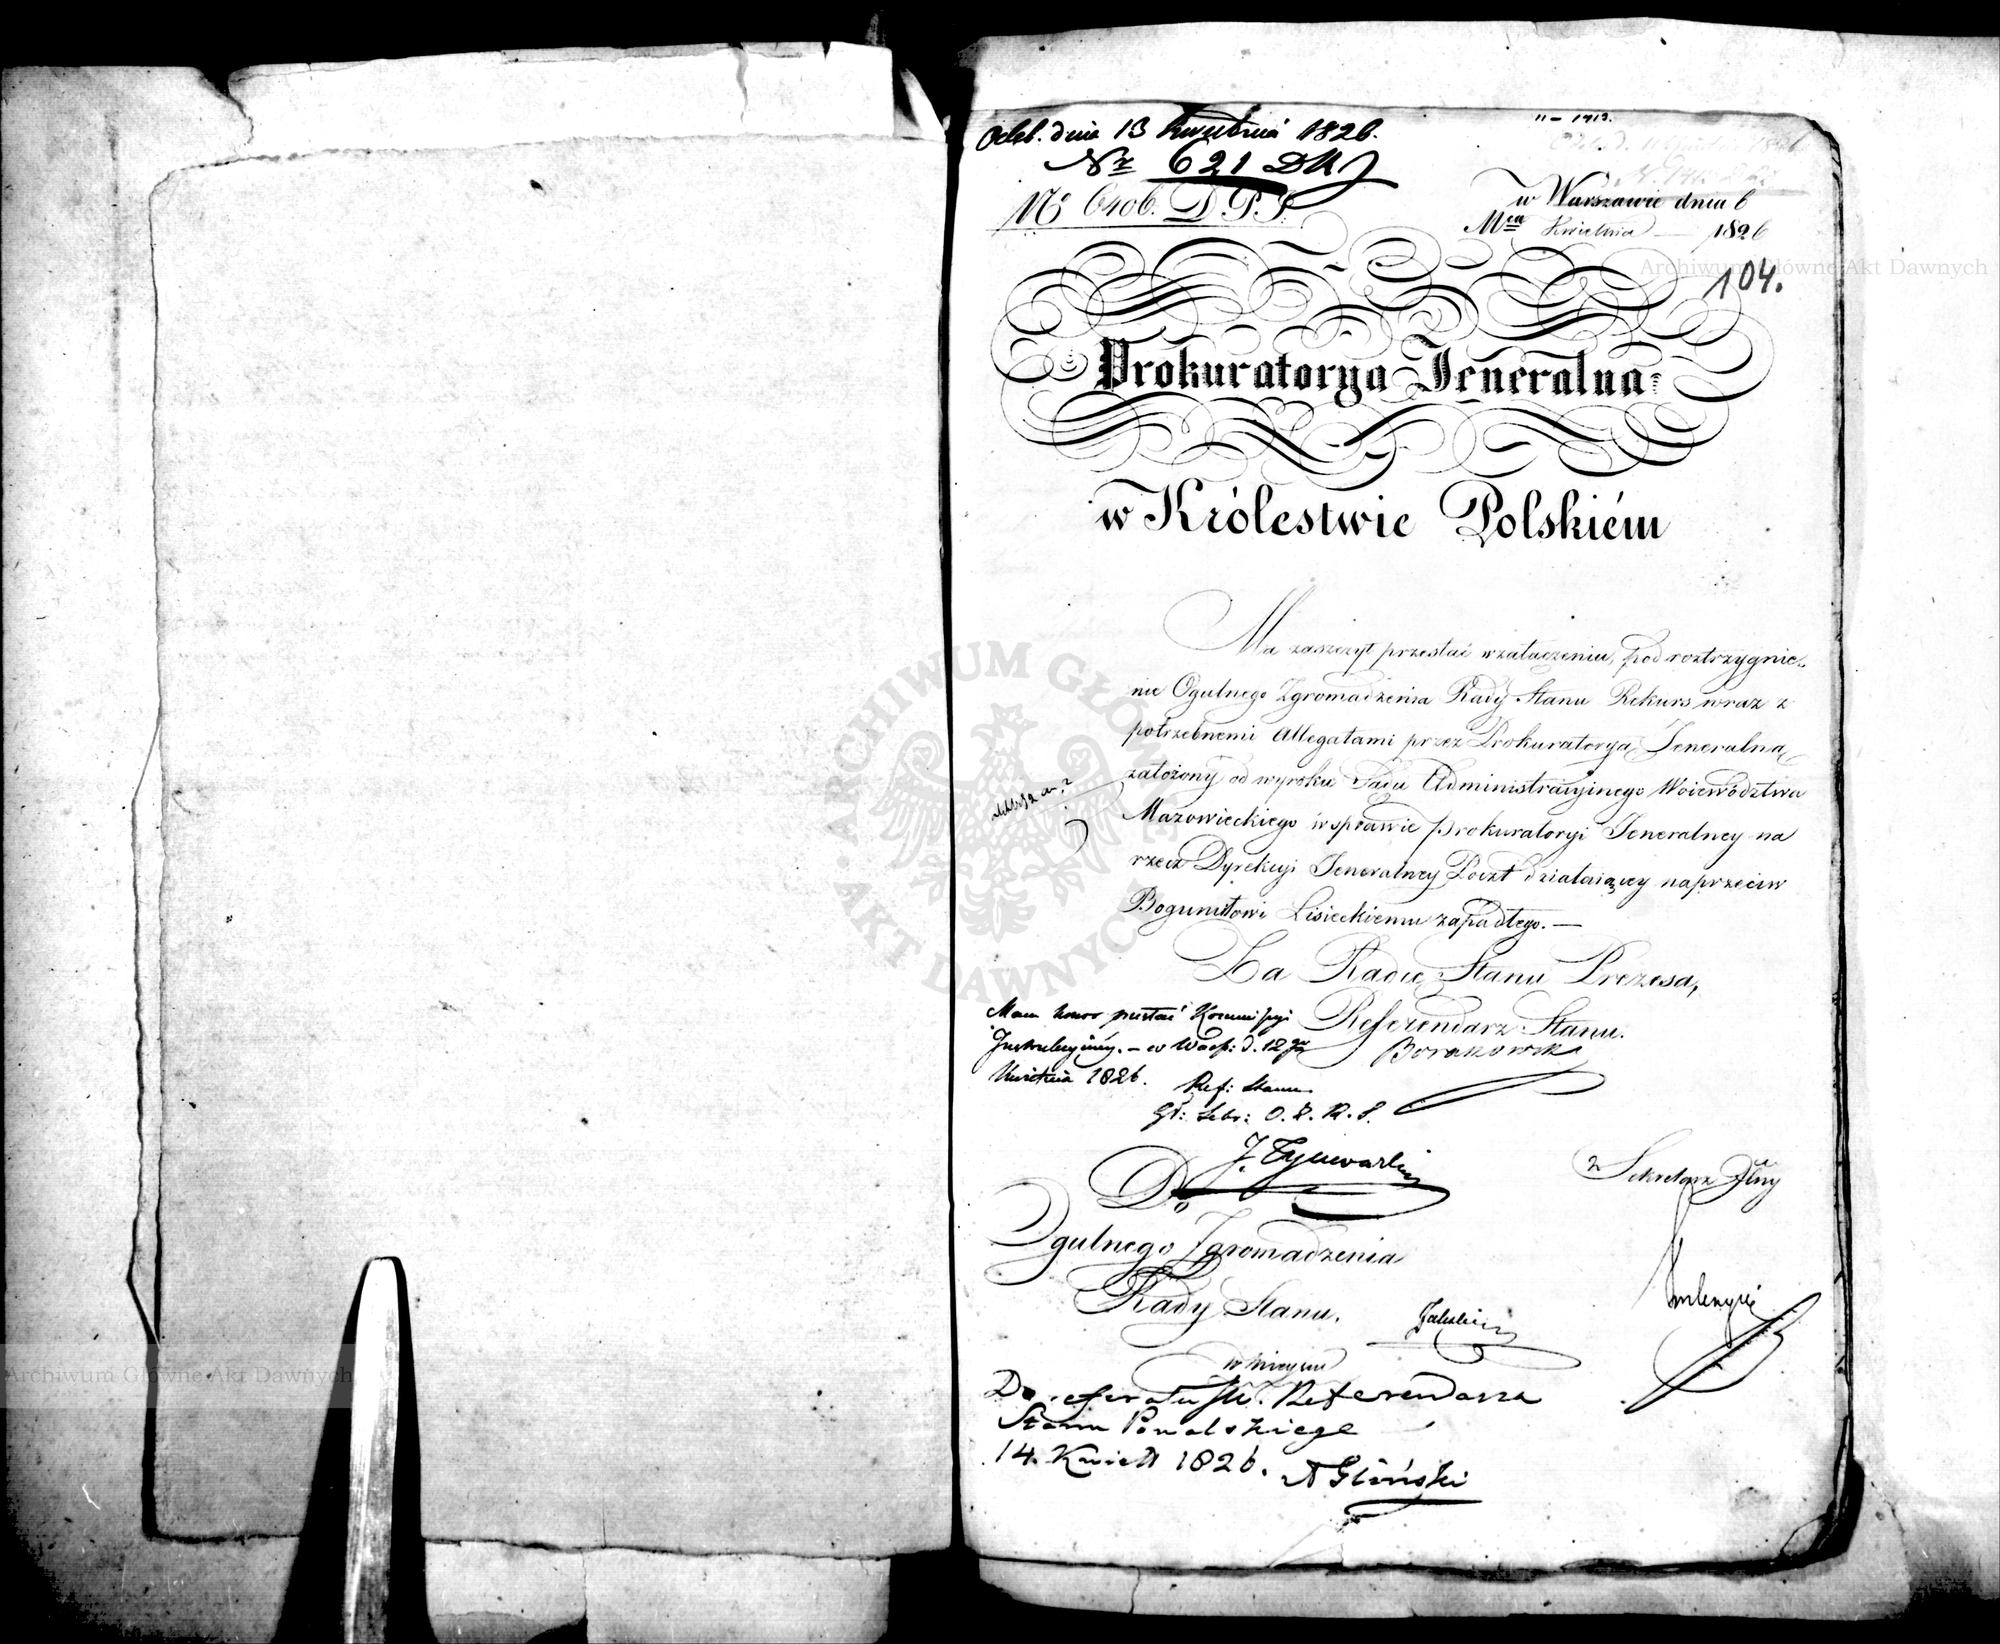 Odeb. dnia 13 Kwietnia 1826.
Nr 621 DKJ
Nº 6406. D.P.S.
11 - 1913.
w Warszawie dnia 6
Mca Kwietnia 1826
104.
Prokuratorya Jeneralna
w Królestwie Polskiém
Ma zaszczyt przesłać w załączeniu, pod roztrzygnie-
nie Ogulnego Zgromadzenia Rady Stanu Rekurs wraz z
potrzebnemi Allegatami przez Prokuratoryą Jeneralną
założony od wyroku Sądu Administracyinego Woiewództwa
Mazowieckiego w sprawie Prokuratoryi Jeneralney na
rzecz Dyrekcyi Jeneralney Poczt działaiącey naprzeciw
Bogumiłowi Lisieckiemu zapadłego. —
Za Radcę Stanu Prezesa,
Referendarz Stanu.
Borakowski
Mam honor przesłać Kommissyi
Instrukcyiney. - w Warsz: d. 12go
Kwietnia 1826.
Ref: Stanu
Gł: Sekr: O. Z. R. S.
J. Tymowski
Sekretarz Jlny
Do
Ogulnego Zgromadzenia
Rady Stanu.
w mieyscu
Do referatu JW. Referendarza
Stanu Powalskiego
14. Kwiet 1826. A Gliński
ARCHIWUM GŁÓWNE AKT DAWNYCH
Archiwum Główne Akt Dawnych
Archiwum Główne Akt Dawnych